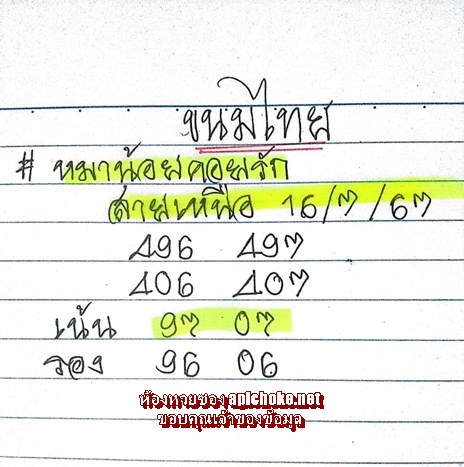 ขนมไทย
# หมาน้อยคอยรัก
สายเหนือ 16/7/67
496 497
406 407
เน้น 97 07
รอง 96 06
ห้องหวยซอง apichoke.net
ขอบคุณเจ้าของข้อมูล